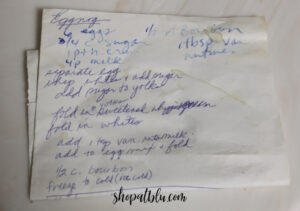 Eggnog
6 eggs 1/2 c bourbon
3/4 c. sugar 1 tbsp van
1 pt h. cream nutmeg
4 c milk
separate egg
whip whites + add sugar
add sugar to yolks
fold in sweetened
fold in whites
add 1 tsp van milk.
add to egg mix + fold
1/2 c. bourbon
Freeze to cold
shopatblu.com